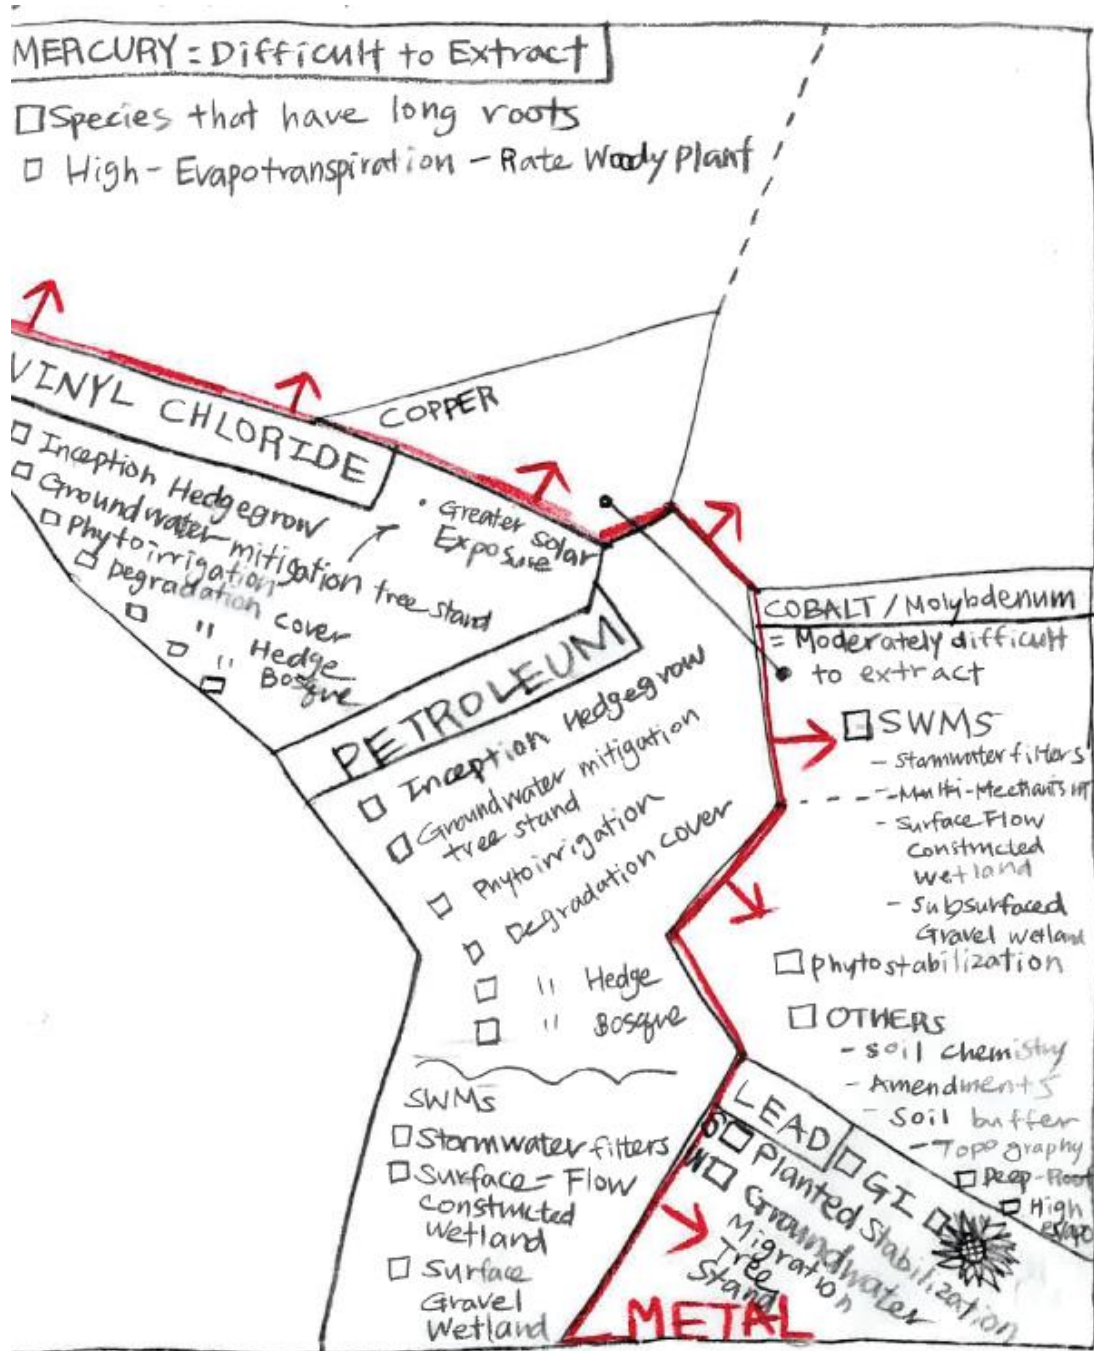 MERCURY = Difficult to Extract
Species that have long roots
High - Evapotranspiration - Rate Woody Plant
VINYL CHLORIDE
Inception Hedgegrow
Groundwater mitigation tree stand
Phytoirrigation
Degradation cover
" Hedge
" Bosque
• Greater solar
Exposure
COPPER
PETROLEUM
Inception Hedgegrow
Groundwater mitigation
tree stand
Phytoirrigation
Degradation cover
" Hedge
" Bosque
SWMs
Stormwater filters
Surface - Flow
Constructed
Wetland
Surface
Gravel
Wetland
COBALT / Molybdenum
= Moderately difficult
to extract
SWMS
- Stormwater filters
- Surface Flow
Constructed
Wetland
- Subsurfaced
Gravel Wetland
Phytostabilization
OTHERS
- Soil chemistry
- Amendments
- Soil buffer
- Topography
Deep-Root
High
evapo
LEAD
GI
Planted Stabilization
Groundwater
Migration
Tree
Stand
METAL